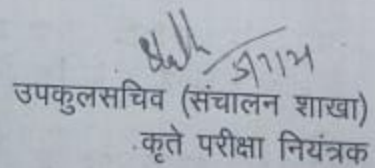 उपकुलसचिव (संचालन शाखा)
कृते परीक्षा नियंत्रक